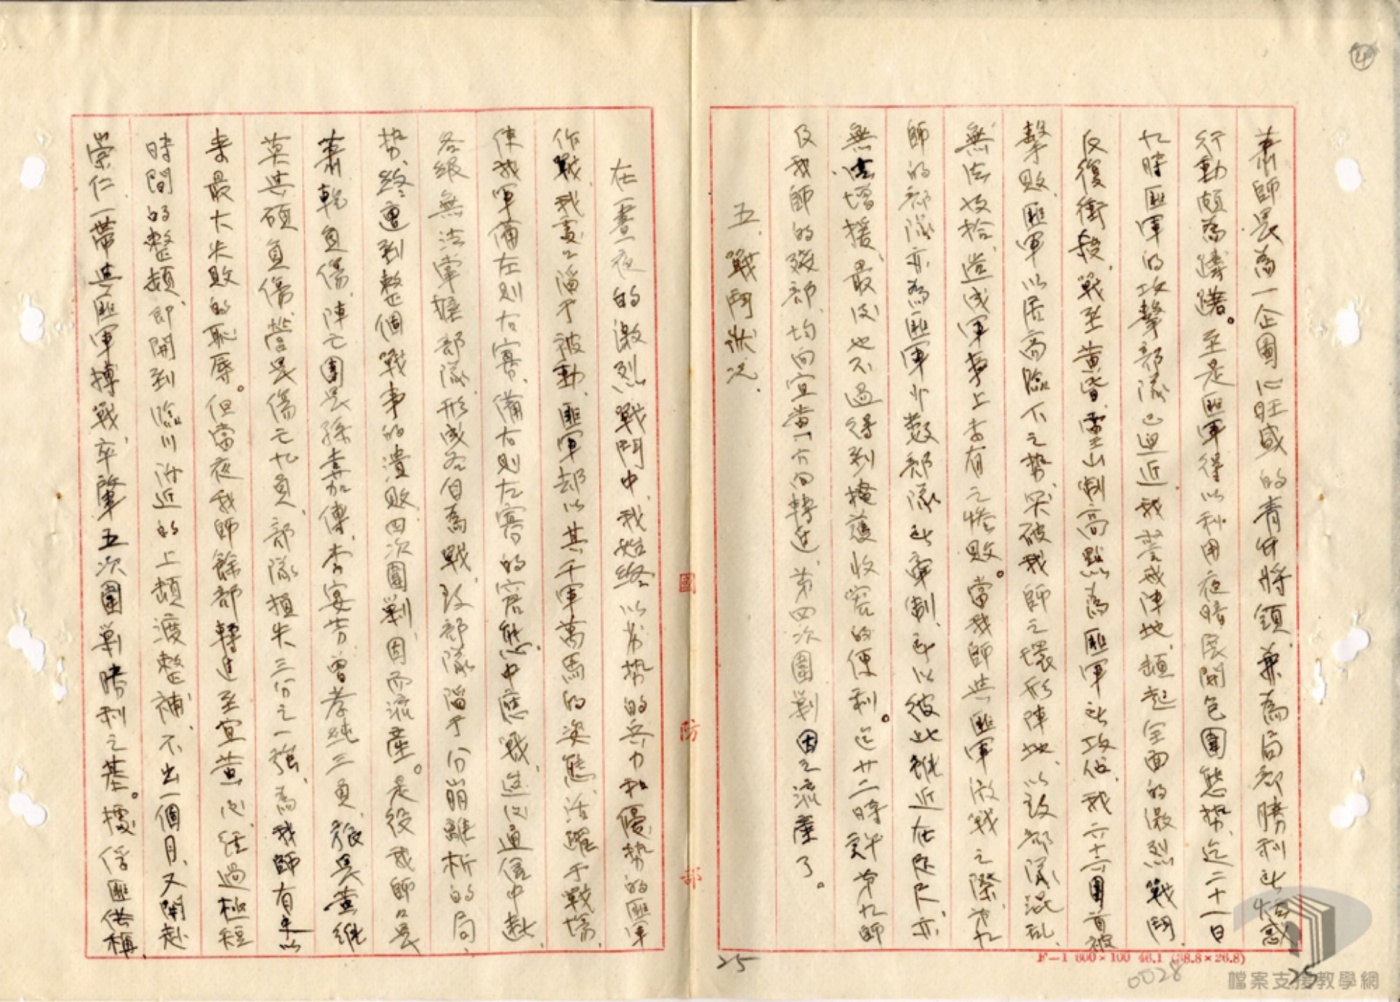 ④
蕭師長為一企圖心旺盛的青年將領，兼為局部勝利所惑
行動頗為躊躇。至是匪軍得以利用夜暗展開包圍態勢，迄二十一日
九時匪軍的攻擊部隊已迫近我警戒陣地，頓起全面的激烈戰鬥
反復衝殺，戰至黃昏，雷山制高點為匪軍所攻佔，我六十六團首被
擊敗，匪軍以居高臨下之勢，突破我師之環形陣地，以致部隊混亂
無法收拾，造成軍事上未有之慘敗。當我師與匪軍激戰之際，第九
師的部隊亦為匪軍少數部隊所牽制，即以彼此雖近在咫尺，亦
無法增援，最後也不過得到掩護收容的便利。迄廿二時許第九師
及我師的殘部，均向宜黃方向轉進，第四次圍剿因之流產了。
五、戰鬥狀況
在一晝一夜的激烈戰鬥中，我始終以劣勢的兵力和優勢的匪軍
作戰，我處之陷于被動，匪軍却以其千軍萬馬的姿態，活躍于戰場，
使我軍備左則右寡，備右則左寡的窘態中應戰，迨後通信中斷，
各級無法掌握部隊，形成各自為戰，致部隊陷于分崩離析的局
勢，終遭到整個戰事的潰敗，四次圍剿，因而流產。是役我師師長
蕭乾負傷，陣亡團長孫嘉傅、李宴芳、曾孝純三員，旅長黃維
莫與碩負傷，營長傷亡九員，部隊損失三分之一強，為我師有史以
來最大失敗的恥辱。但當夜我師餘部轉進至宜黃後，經過極短
時間的整頓，即開到臨川附近的上頓渡整補，不出一個月，又開赴
崇仁一帶與匪軍搏戰，卒肇五次圍剿勝利之基。據俘匪供稱，
國防部
25
25
0028
F—1 600×100 46.1 (38.8×26.8)
檔案支援教學網